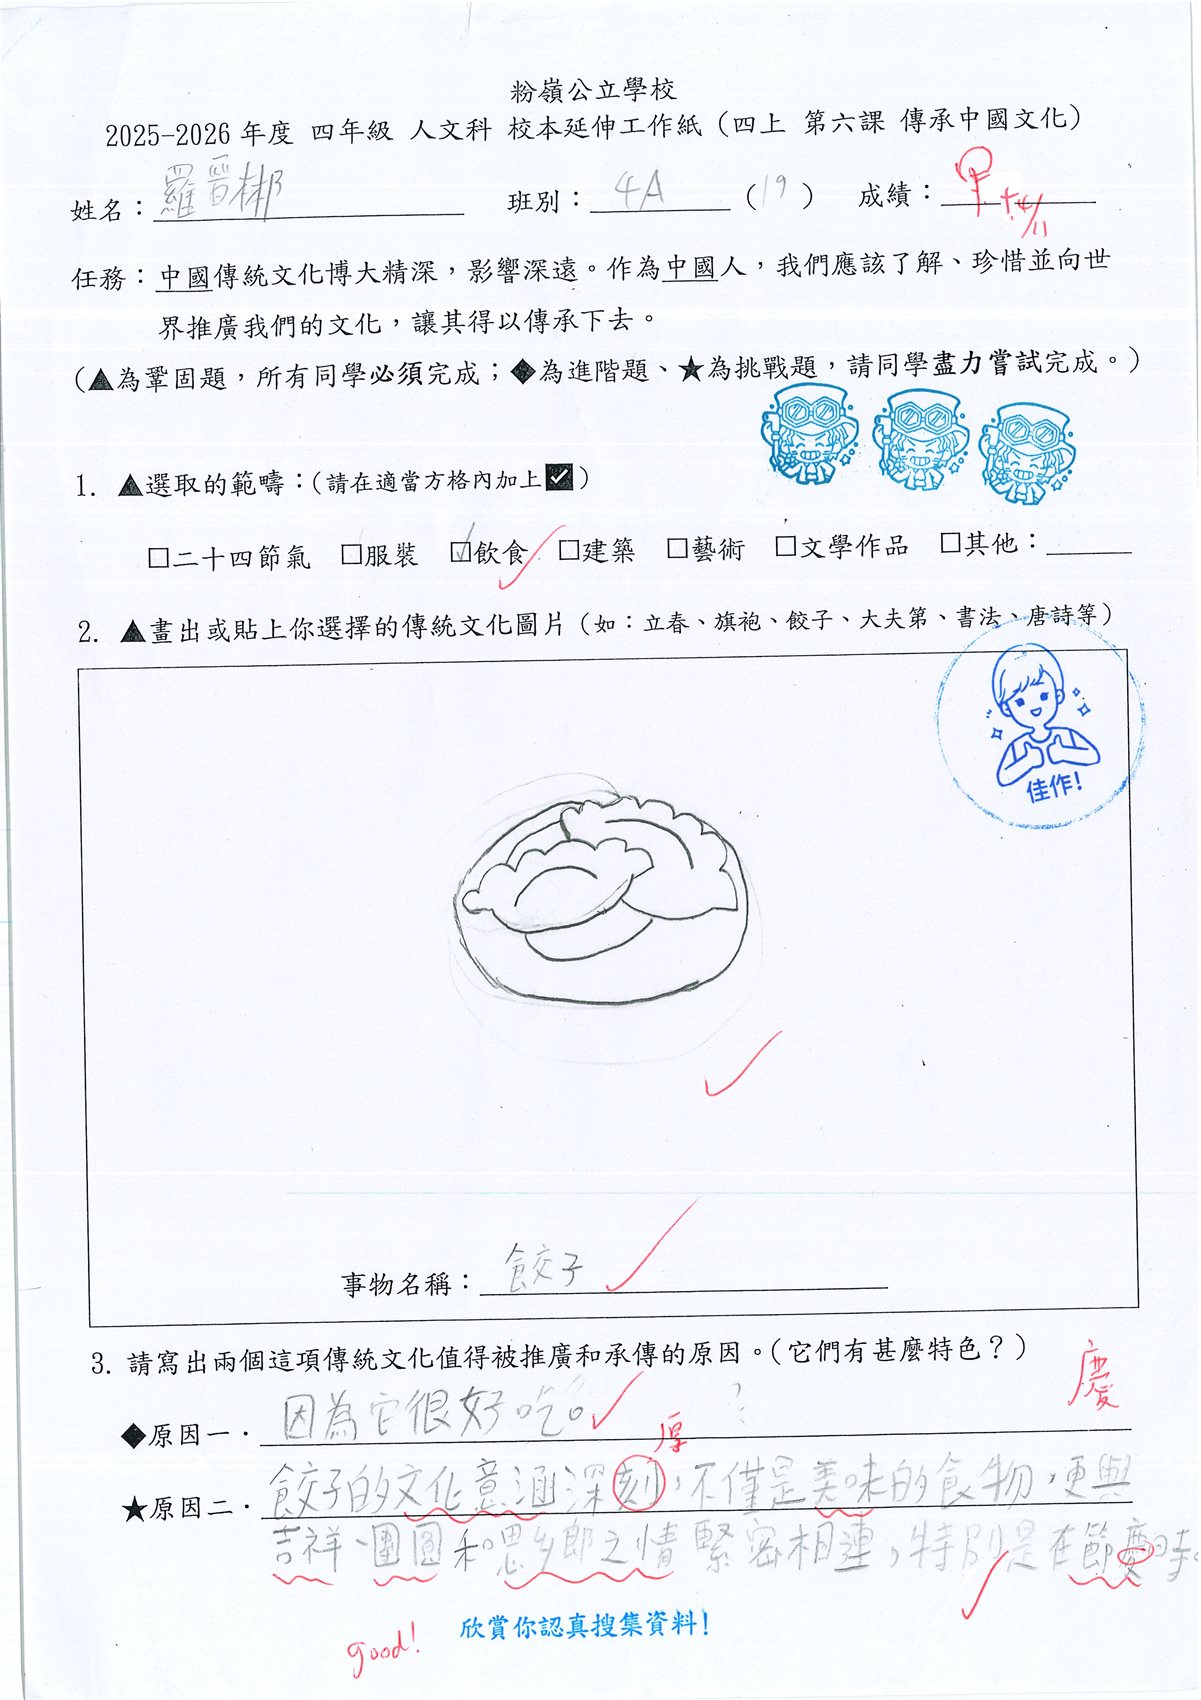 粉嶺公立學校
2025-2026 年度 四年級 人文科 校本延伸工作紙（四上 第六課 傳承中國文化）
姓名：羅晉彬 班別：4A （19） 成績：甲+ 4/11
任務：中國傳統文化博大精深，影響深遠。作為中國人，我們應該了解、珍惜並向世
界推廣我們的文化，讓其得以傳承下去。
（▲為鞏固題，所有同學必須完成；◆為進階題、★為挑戰題，請同學盡力嘗試完成。）
1. ▲選取的範疇：（請在適當方格內加上☑）
□二十四節氣 □服裝 ☑飲食 □建築 □藝術 □文學作品 □其他：
2. ▲畫出或貼上你選擇的傳統文化圖片（如：立春、旗袍、餃子、大夫第、書法、唐詩等）
佳作！
事物名稱：餃子
3. 請寫出兩個這項傳統文化值得被推廣和承傳的原因。（它們有甚麼特色？）
慶
◆原因一．因為它很好吃。
厚
★原因二．餃子的文化意涵深刻，不僅是美味的食物，更與
吉祥、團圓和思鄉之情緊密相連，特別是在節慶時。
欣賞你認真搜集資料！
good!